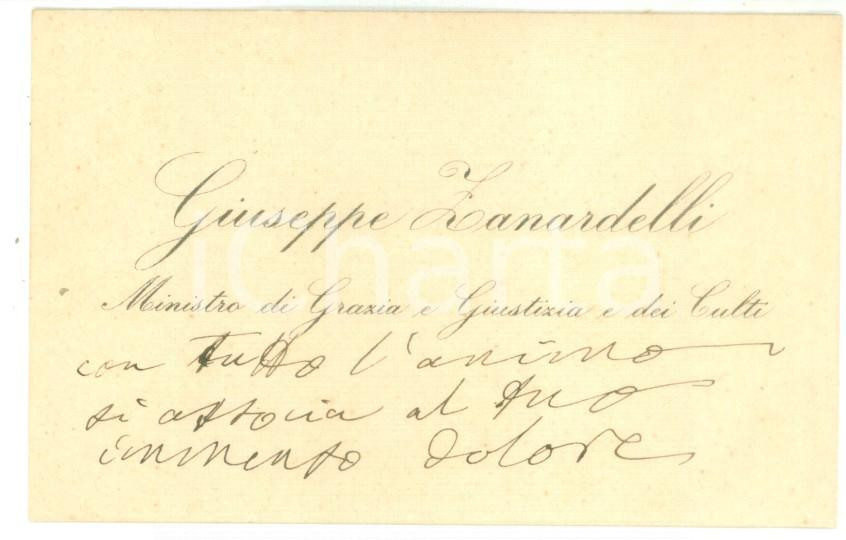 Giuseppe Zanardelli
iCharta
Ministro di Grazia e Giustizia e dei Culti
con tutto l'animo
si associa al tuo
immenso dolore